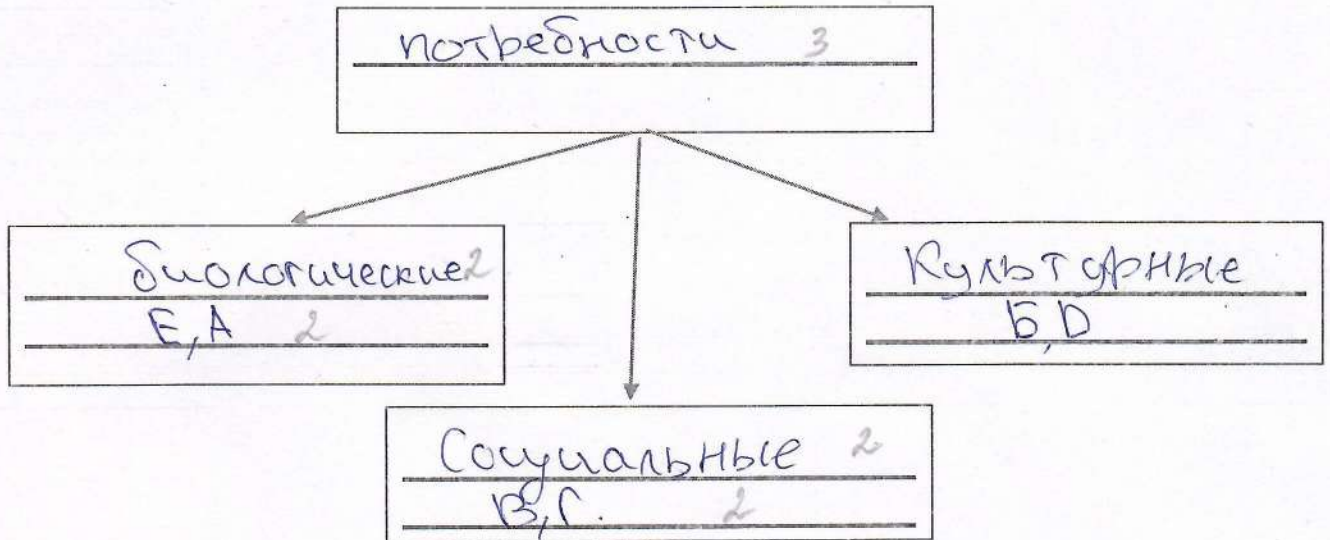 потребности 3
биологические 2
Е, А 2
Культурные
Б, D
Социальные 2
В, Г. 2